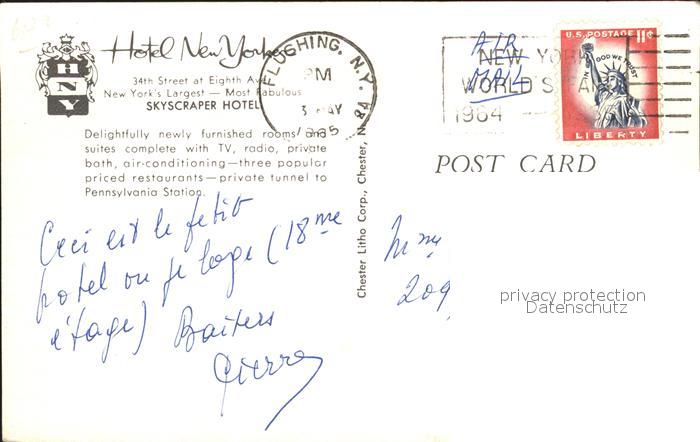 Hotel New Yorker
H
N
Y
34th Street at Eighth Ave.
New York's Largest — Most Fabulous
SKYSCRAPER HOTEL
Delightfully newly furnished rooms
suites complete with TV, radio, private
bath, air-conditioning—three popular
priced restaurants—private tunnel to
Pennsylvania Station.
FLUSHING, N.Y.
PM
3 MAY
AIR
MAIL
NEW YORK
WORLD'S FAIR
1964
U.S. POSTAGE 11¢
IN GOD WE TRUST
LIBERTY
POST CARD
Chester Litho Corp., Chester, N.Y. 84
Ceci est le petit
hotel ou je loge (18me
étage) Baisers
Pierre
Mme
209
privacy protection
Datenschutz